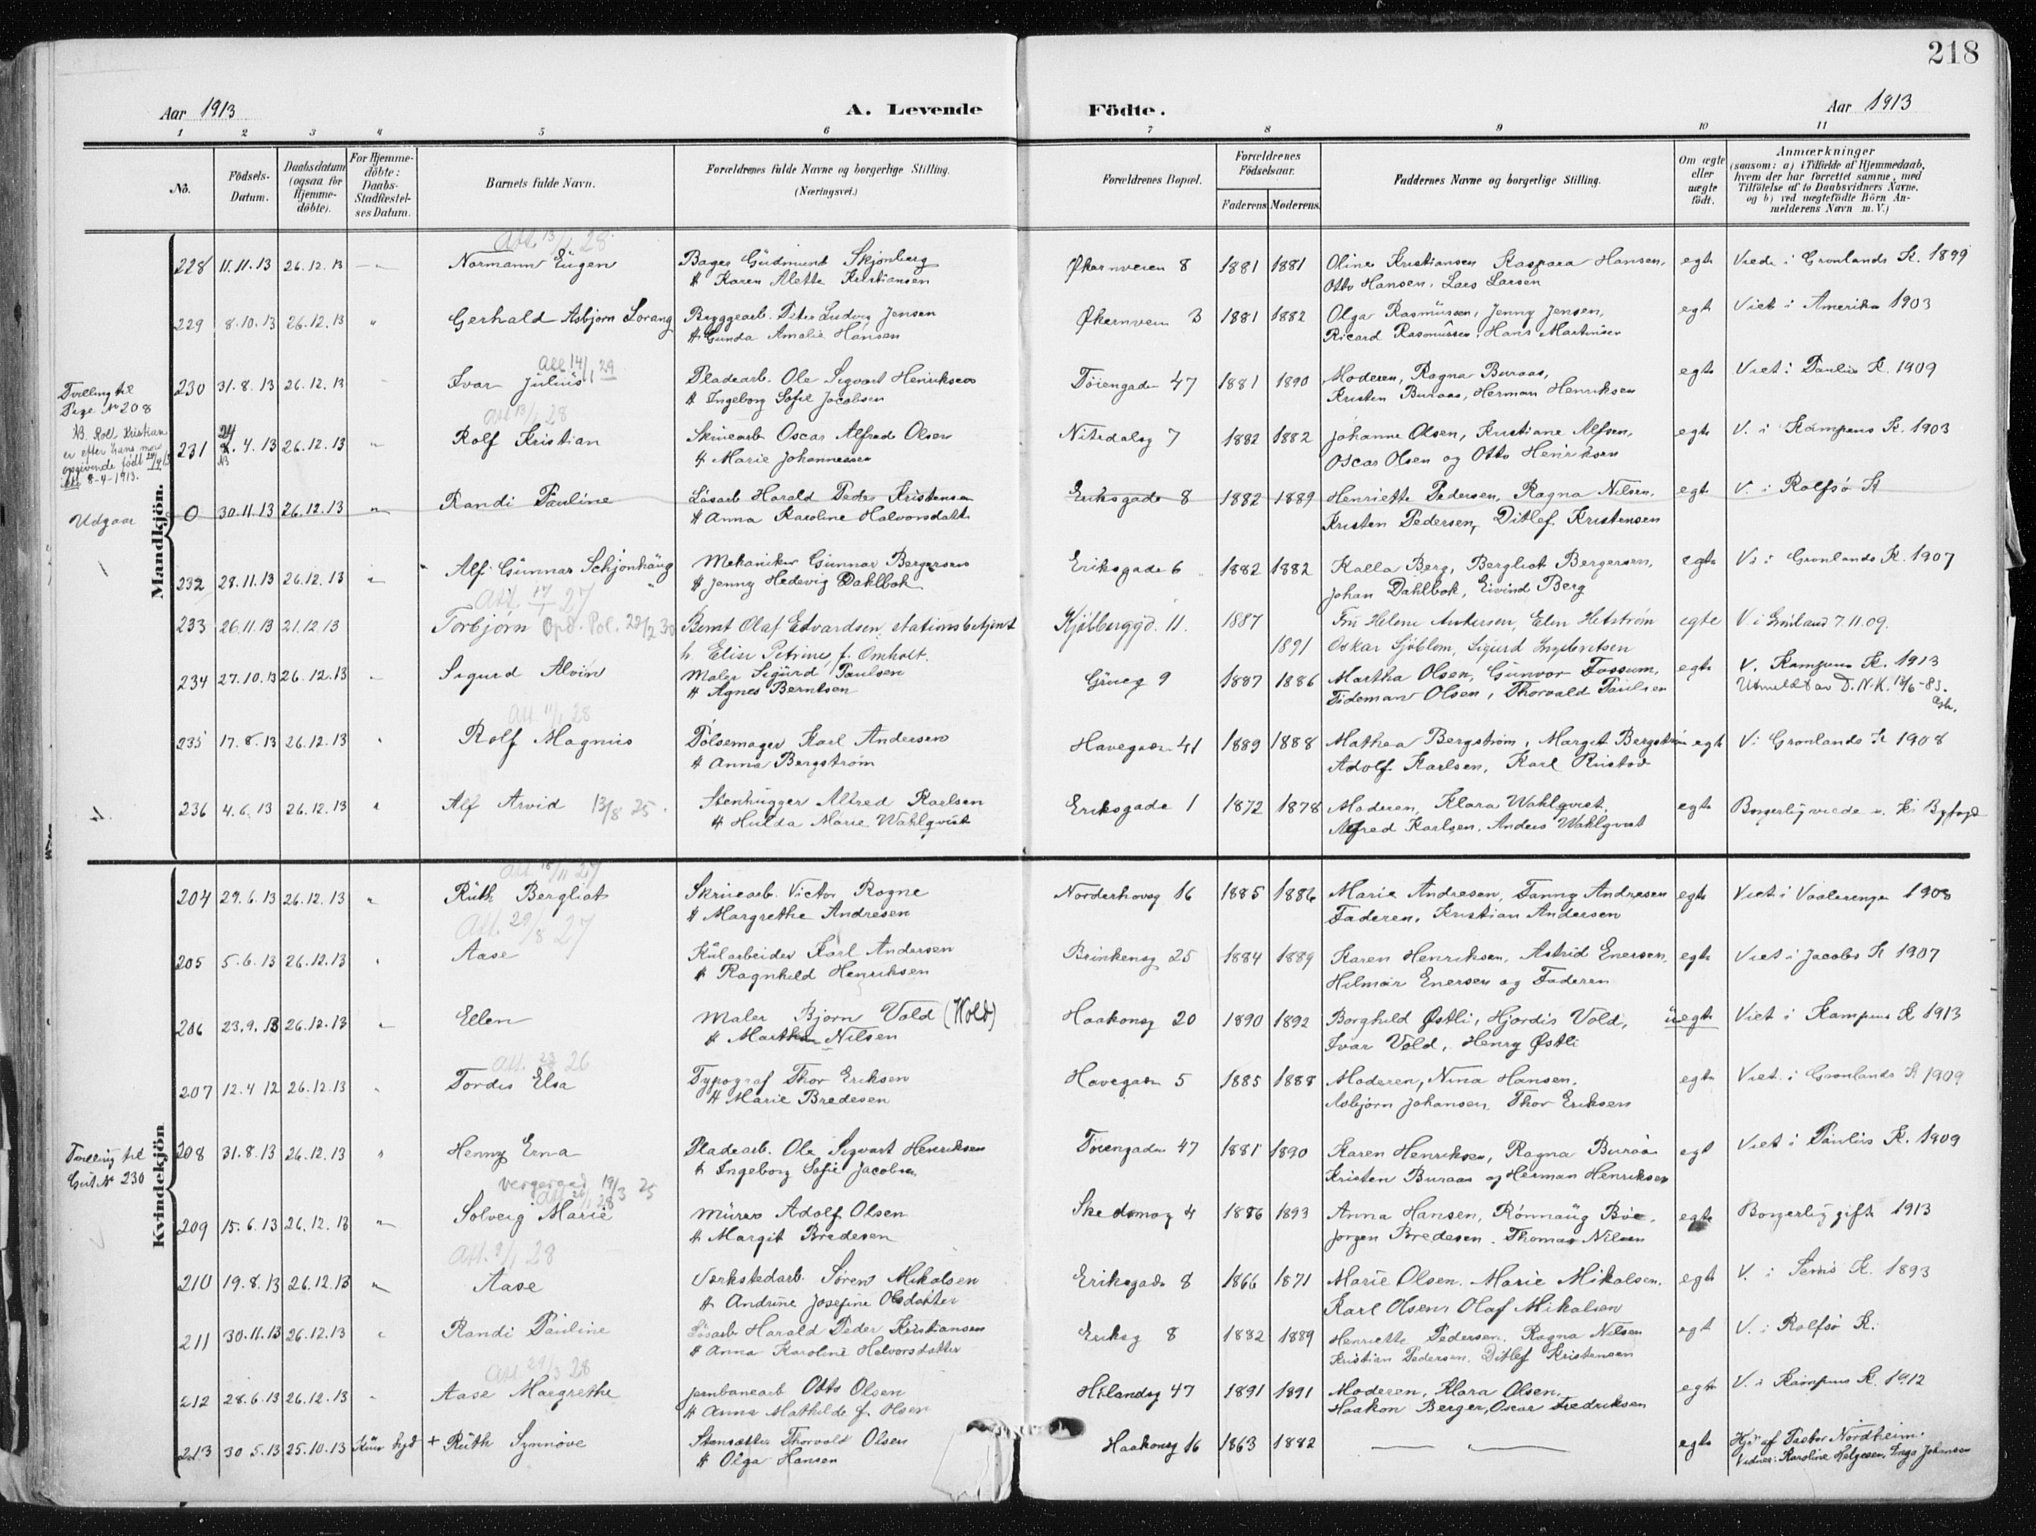 218
Aar 1913 A. Levende Födte. Aar 1913
1 2 3 4 5 6 7 8 9 10 11
No. Födsels-Datum. Daabsdatum (ogsaa for Hjemme-döbte). For Hjemme-döbte: Daabs-Stadfæstel-ses Datum. Barnets fulde Navn. Forældrenes fulde Navne og borgerlige Stilling. (Næringsvei.) Forældrenes Bopæl. Forældrenes Födselsaar. Faderens. Moderens. Faddernes Navne og borgerlige Stilling. Om ægte eller uægte födt. Anmærkninger (saasom: a) i Tilfælde af Hjemmedaab, hvem der har forrettet samme, med Tilföielse af to Daabsvidners Navne. og b) ved uægtefödte Börn An-melderens Navn m. V.)
Mandkjön.
Att 13/1 28
228 11.11.13 26.12.13 Normann Eugen Bager Gudmund Skjønberg Økernveien 8 1881 1881 Oline Kristiansen Kaspara Hansen, egte Viede i Grønlands K. 1899
H Karen Alette Kristiansen Otto Hansen, Lars Larsen
229 8.10.13 26.12.13 " Gerhald Asbjørn Lorang Bryggearb. Peter Ludvig Jensen Økernveien 3 1881 1882 Olga Rasmussen, Jenny Jensen, egt Viet i Amerika 1903
H Gunda Amalie Hansen Ricard Rasmussen, Hans Martinsen
Att 14/1 29
Tvilling til Pige No 208
230 31.8.13 26.12.13 Ivar Julius Pladearb. Ole Sigvart Henriksen Tøiengaden 47 1881 1890 Moderen, Ragna Buraas, egt Viet i Paulus K. 1909
H Ingeborg Sofie Jacobsen Kristen Buraas, Herman Henriksen
Att 13/1 28
NB. Rolf Kristian er efter hans mors opgivende født 24/4 13 ikke 8-4-1913.
231 24.4.13 26.12.13 " Rolf Kristian Skruearb Oscar Alfred Olsen Nitedalsg 7 1882 1882 Johanne Olsen, Kristiane Alfsen, egt V. i Kampens K. 1903
H Marie Johannessen Oscar Olsen og Otto Henriksen
Udgaar
0 30.11.13 26.12.13 " Randi Pauline Løsarb Harald Peder Kristensen Eriksgade 8 1882 1889 Henriette Pedersen, Ragna Nilsen, egt V. i Rolfsø K
H Anna Karoline Halvorsdatter Kristen Pedersen, Ditlef Kristensen
232 28.11.13 26.12.13 " Alf Gunnar Schjønhaug Mekaniker Gunnar Bergersen Eriksgade 6 1882 1882 Kalla Berg, Bergliot Bergersen, egte V. i Grønlands K. 1907
H Jenny Hedevig Dahlbok Johan Dahlbok, Eivind Berg
Att 17/1 27
233 26.11.13 21.12.13 Torbjørn Opd. Pol. 29/2 30 Bernt Olaf Edvardsen, stationsbetjent Kjølberggd. 11. 1887 Fru Helene Andersen, Elin Hetstrøm egte V i Grønland 7.11.09.
h. Elise Petrine f. Omholt. 1891 Oskar Sjøblom, Sigurd
234 27.10.13 26.12.13 Sigurd Alvin Maler Sigurd Paulsen Grueg 9 1887 1886 Martha Olsen, Gunvor Fossum, egt V. Kampens K. 1913
H Agnes Berntsen Tideman Olsen, Thorvald Paulsen Utmeldt av D.N.K. 13/6-83.
Att 11/1 28
235 17.8.13 26.12.13 " Rolf Magnus Pølsemager Karl Andersen Havegaden 41 1889 1888 Mathea Bergstrøm, Margit Bergstrøm egt V. Grønlands K 1908
H Anna Bergstrøm Adolf Karlsen, Karl Rustad
236 4.6.13 26.12.13 " Alf Arvid 13/8 25. Stenhugger Alfred Karlsen Eriksgade 1 1872 1878 Moderen, Klara Wahlqvist, egt Borgerlig viede
H Hulda Marie Wahlqvist Alfred Karlsen, Anders Wahlqvist
Kvindekjön
Att 18/11 27
204 29.6.13 26.12.13 " Ruth Bergliot Skruearb. Victor Ragne Norderhovsg 16 1885 1886 Marie Andresen, Fanny Andresen egt Viet i Vaalerengen 1908
H Margrethe Andresen Faderen, Kristian Andersen
Att 29/8 27
205 5.6.13 26.12.13 " Aase Kularbeider Karl Andersen Brinkensg 25 1884 1889 Karen Henriksen, Astrid Enersen, egt Viet i Jacobs K 1907
H Ragnhild Henriksen Hilmar Enersen og Faderen
206 23.9.13 26.12.13 " Ellen Maler Bjørn Vold (Wold) Haakonsg 20 1890 1892 Borghild Østli, Hjordis Vold, uegt Viet i Kampens K 1913
H Martha Nilsen Ivar Vold, Henry Østli
Att. 23 26
207 12.4 12 26.12.13 " Tordis Elsa Typograf Thor Eriksen Havegaden 5 1885 1888 Moderen, Nina Hansen, egt Viet i Grønlands K 1909
H Marie Bredesen Asbjørn Johansen, Thor Eriksen
Tvilling til Gut No 230
208 31.8.13 26.12.13 " Henny Erna Pladearb. Ole Sigvart Henriksen Tøiengaden 47 1881 1890 Karen Henriksen, Ragna Buraas egt Viet i Paulus K. 1909
H Ingeborg Sofie Jacobsen Kristen Buraas og Herman Henriksen
19/3 25
209 15.6.13 26.12.13 " Solveig Marie Murer Adolf Olsen Skedsmog 4 1886 1893 Anna Hansen, Rønnaug Bøe, egte Borgerlig gift 1913
H Margit Bredesen Jørgen Bredesen, Thomas Nilsen
Att. 9/1 28
210 19.8.13 26.12.13 " Aase Værkstedarb. Søren Mikalsen Eriksgade 8 1866 1871 Marie Olsen, Marie Mikalsen, egt V. i Sems K. 1893
H Andrine Josefine Olsdatter Karl Olsen, Olaf Mikalsen
211 30.11.13 26.12.13 " Randi Pauline Løsarb Harald Peder Kristiansen Eriksg 8 1882 1889 Henriette Pedersen, Ragna Nilsen egt V. i Rolfsø K.
H Anna Karoline Halvorsdatter Kristian Pedersen, Ditlef Kristensen
Att 29/3 28
212 28.6.13 26.12.13 " Aase Margrethe Jernbanearb Otto Olsen Hølandsg 47 1891 1891 Moderen, Klara Olsen, egt V. i Kampens K. 1912
H Anna Mathilde f. Olsen Haakon Berger, Oscar Fredriksen
213 30.5.13 25.10.13 Kun hjd + Ruth Synnøve Stensætter Thorvald Olsen Haakonsg 16 1863 1882 egt Hjd af Pastor Nordheim.
H Olga Hansen Vidner: Karoline Helgesen, Inga Johansen